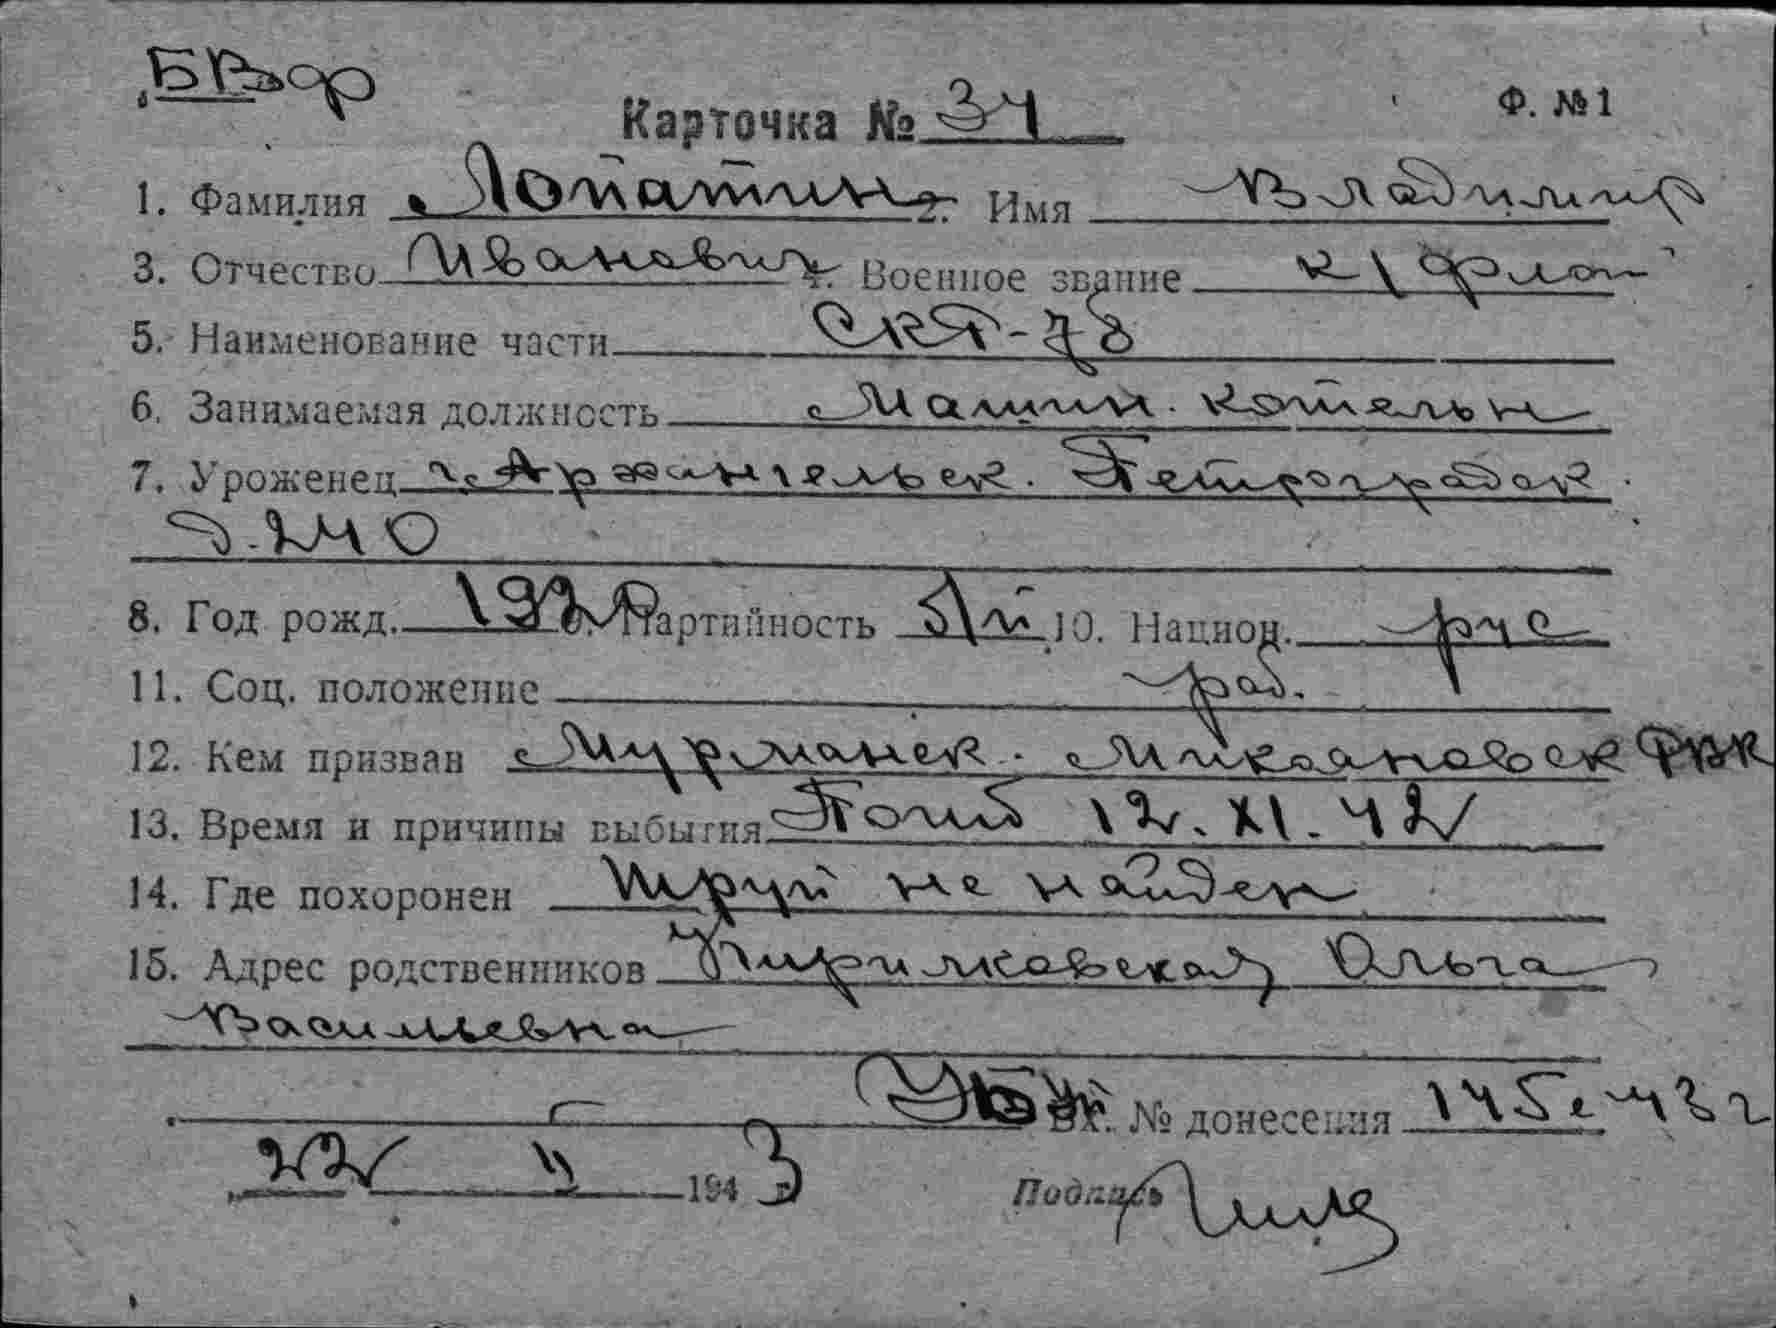 Карточка № 34
Ф. №1
1. Фамилия Лопатин 2. Имя Владимир
3. Отчество Иванович 4. Военное звание к/флот
5. Наименование части СКР-78
6. Занимаемая должность Машин. котельн
7. Уроженец г. Архангельск. Петроградск.
д. 240
8. Год рожд. 9. Партийность б/п 10. Национ. рус
11. Соц. положение раб.
12. Кем призван Мурманск. Микояновск РВК
13. Время и причины выбытия Погиб 12.XI.42
14. Где похоронен Труп не найден
15. Адрес родственников Ольга
Васильевна
Вх. № донесения 1454с 43г
22 II 1943 Подпись